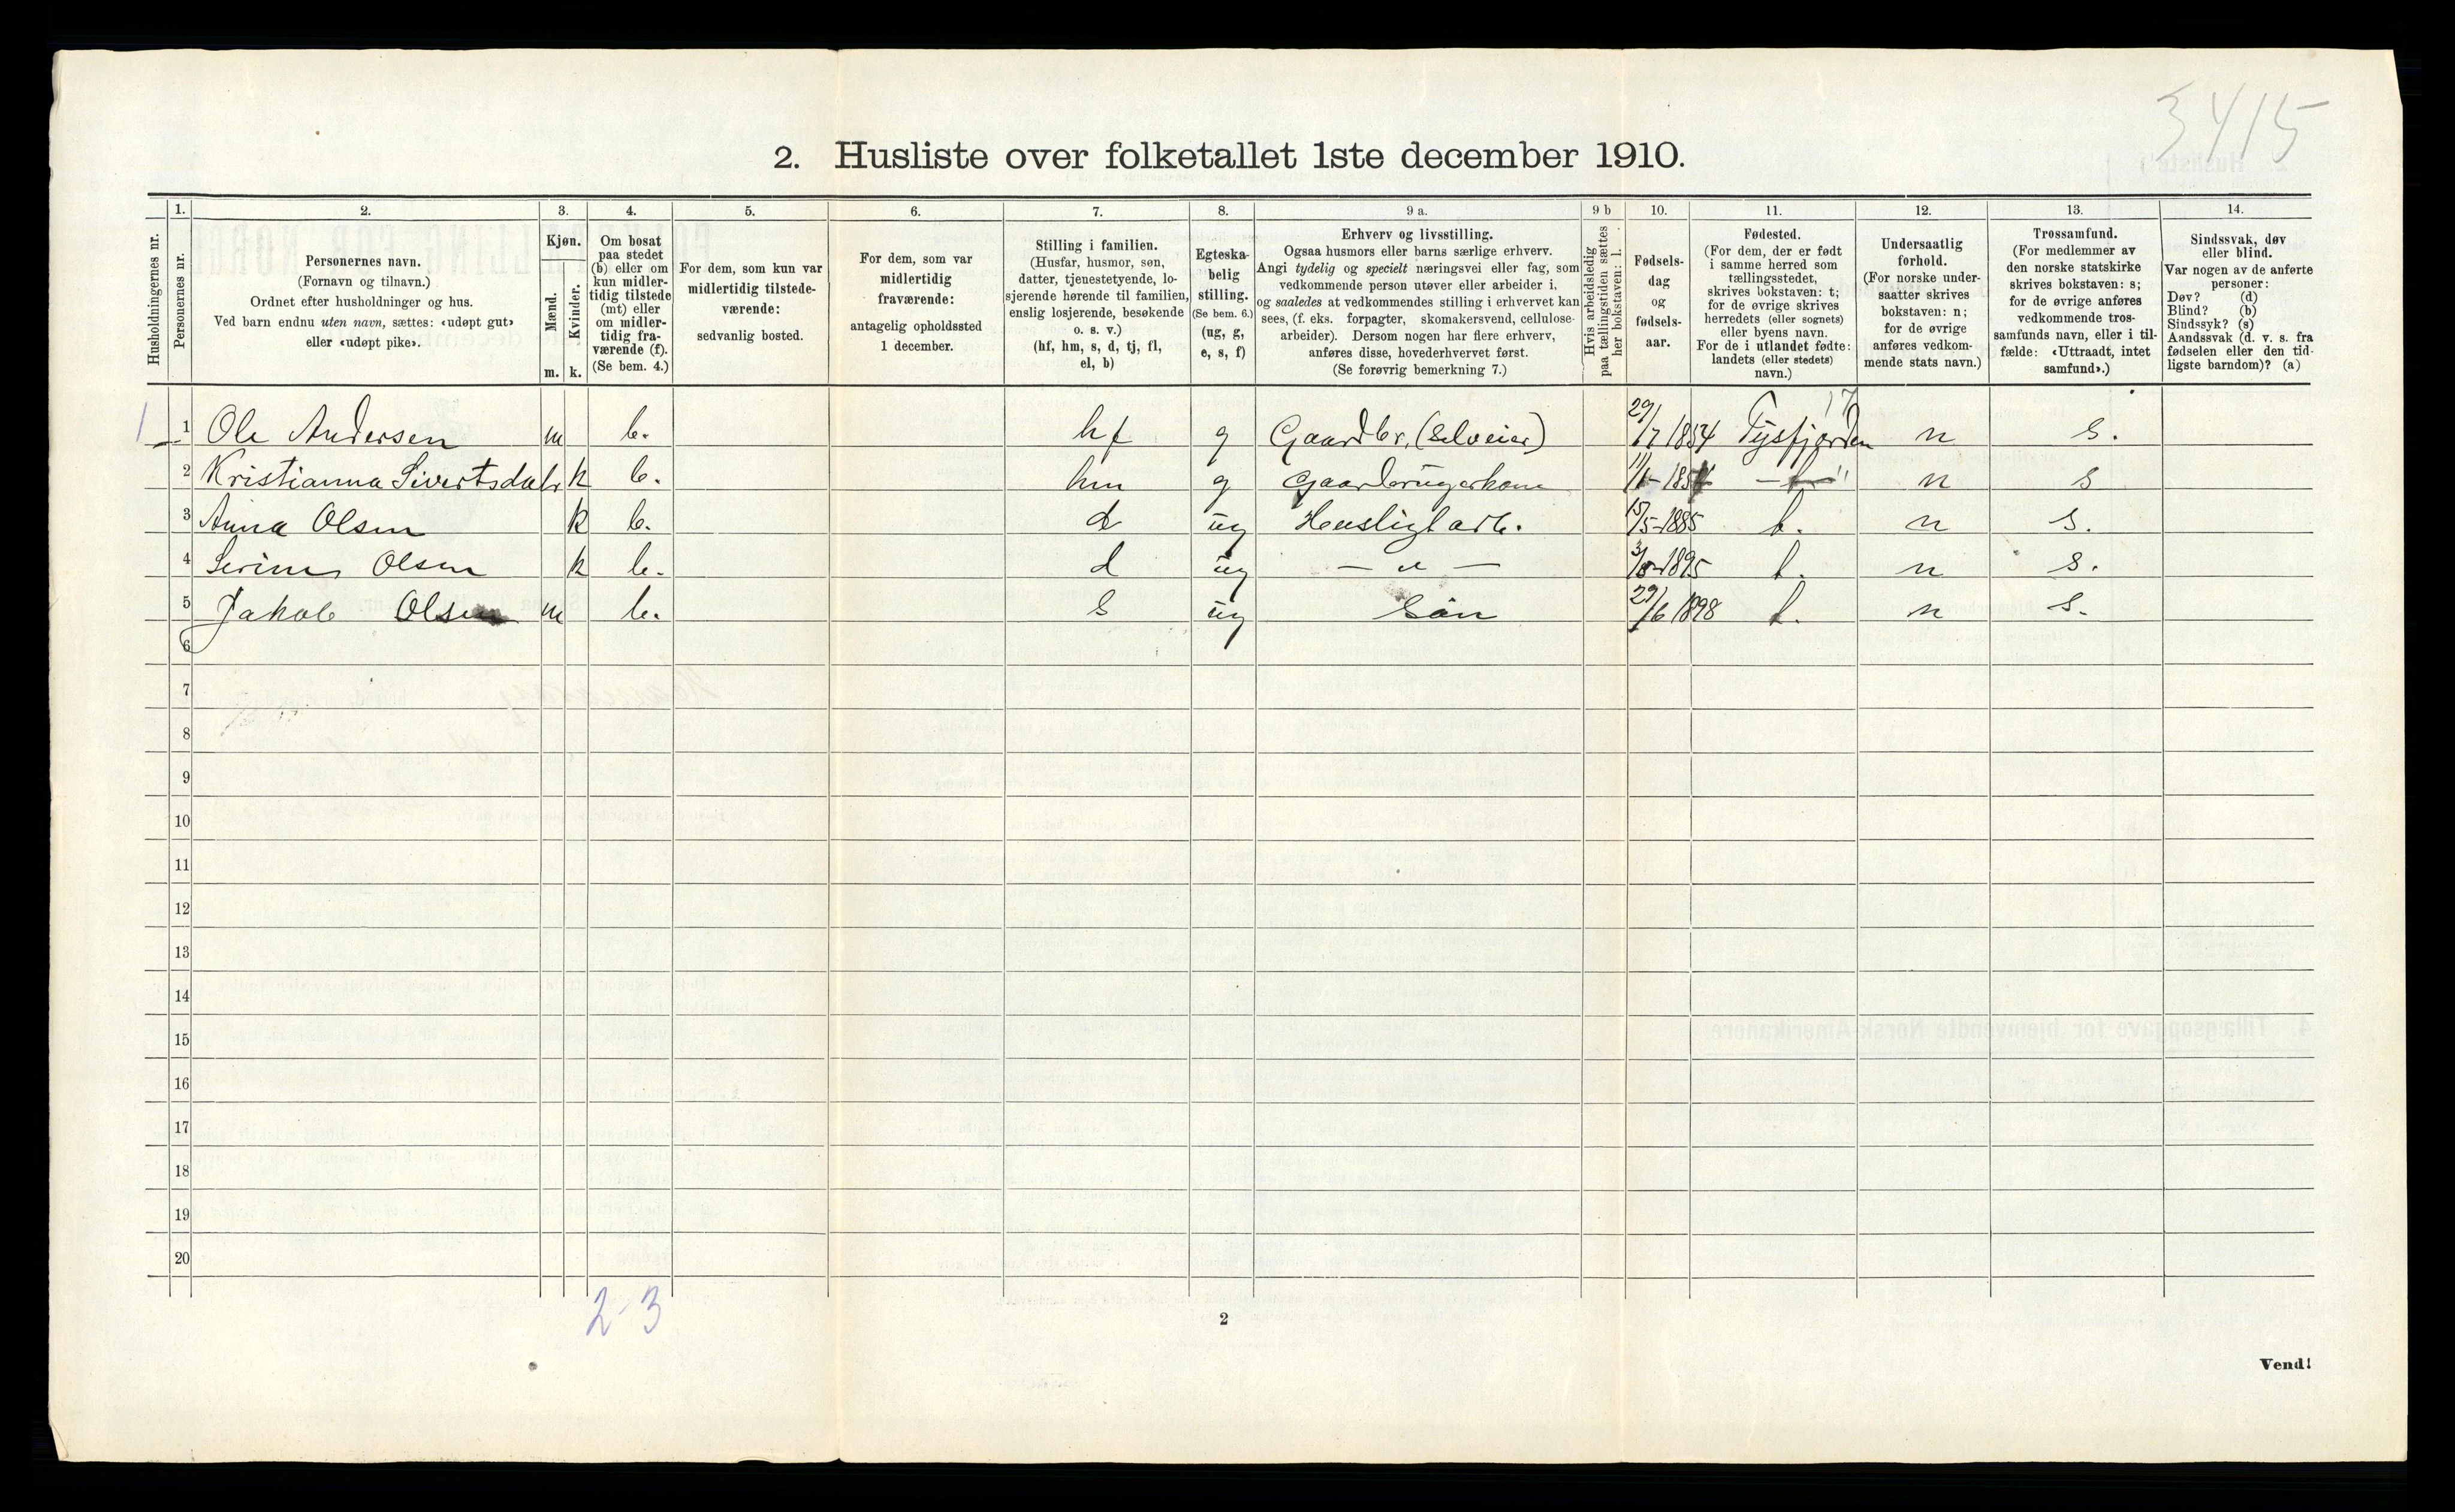 3415
2. Husliste over folketallet 1ste december 1910.
Husholdningernes nr.
1.
Personernes nr.
2.
Personernes navn.
(Fornavn og tilnavn.)
Ordnet efter husholdninger og hus.
Ved barn endnu uten navn, sættes: «udøpt gut»
eller «udøpt pike».
3.
Kjøn.
Mænd.
Kvinder.
m. k.
4.
Om bosat
paa stedet
(b) eller om
kun midler-
tidig tilstede
(mt) eller
om midler-
tidig fra-
værende (f).
(Se bem. 4.)
5.
For dem, som kun var
midlertidig tilstede-
værende:
sedvanlig bosted.
6.
For dem, som var
midlertidig
fraværende:
antagelig opholdssted
1 december.
7.
Stilling i familien.
(Husfar, husmor, søn,
datter, tjenestetyende, lo-
sjerende hørende til familien,
enslig losjerende, besøkende
o. s. v.)
(hf, hm, s, d, tj, fl,
el, b)
8.
Egteska-
belig
stilling.
(Se bem. 6.)
(ug, g,
e, s, f)
9 a.
Erhverv og livsstilling.
Ogsaa husmors eller barns særlige erhverv.
Angi tydelig og specielt næringsvei eller fag, som
vedkommende person utøver eller arbeider i,
og saaledes at vedkommendes stilling i erhvervet kan
sees, (f. eks. forpagter, skomakersvend, cellulose-
arbeider). Dersom nogen har flere erhverv,
anføres disse, hovederhvervet først.
(Se forøvrig bemerkning 7.)
9 b
Hvis arbeidsledig
paa tællingstiden sættes
her bokstaven: l.
10.
Fødsels-
dag
og
fødsels-
aar.
11.
Fødested.
(For dem, der er født
i samme herred som
tællingsstedet,
skrives bokstaven: t;
for de øvrige skrives
herredets (eller sognets)
eller byens navn.
For de i utlandet fødte:
landets (eller stedets)
navn.)
12.
Undersaatlig
forhold.
(For norske under-
saatter skrives
bokstaven: n;
for de øvrige
anføres vedkom-
mende stats navn.)
13.
Trossamfund.
(For medlemmer av
den norske statskirke
skrives bokstaven: s;
for de øvrige anføres
vedkommende tros-
samfunds navn, eller i til-
fælde: «Uttraadt, intet
samfund».)
14.
Sindssvak, døv
eller blind.
Var nogen av de anførte
personer:
Døv? (d)
Blind? (b)
Sindssyk? (s)
Aandssvak (d. v. s. fra
fødselen eller den tid-
ligste barndom)? (a)
1 1 Ole Andersen m b. hf g Gaardbr. (Selveier) 29/7 1854 Tysfjorden 17 n s.
2 Kristianna Sivertsdatr k b. hm g Gaarbrugerkone n s
3 Anna Olsen k b. d ug Husligt arb. 15/5-1885 t. n s.
4 Olsen k b. d ug — " — 1895 t. n s.
5 Jakob Olsen m b. s ug Søn 29/6 1898 t. n s.
6
7
8
9
10
11
12
13
14
15
16
17
18
19
20
2-3
2
Vend!